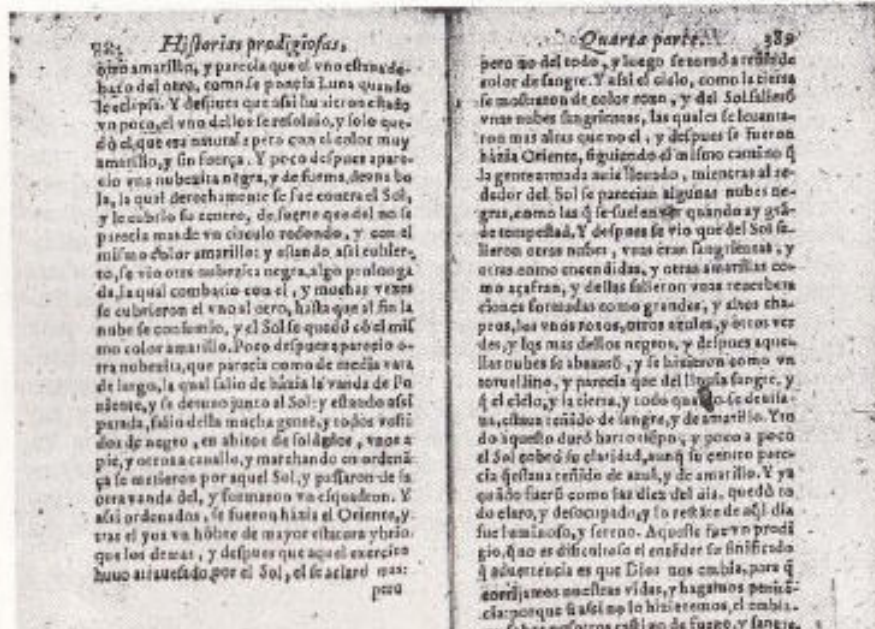 Historias prodigiosas,
otro amarillo, y parecia que el vno estaua de-
baxo del otro, como se ponela Luna quando
se eclipsa. Y despues que assi huuieron estado
vn poco, el vno dellos se resoluio, y solo que-
dò el que era natural: pero con el color muy
amarillo, y sin fuerça. Y poco despues apare-
cio vna nubezita negra, y de forma de vna bo
la, la qual derechamente se fue contra el Sol,
y le cubrio su centro, de suerte que del no se
parecia mas de vn circulo redondo, y con el
mismo color amarillo: y estando assi cubier-
to, se vio otra nubezita negra, algo prolonga
da, la qual combatio con el, y muchas vezes
se cubrieron el vno al otro, hasta que al fin la
nube se consumio, y el Sol se quedó cõ el mis
mo color amarillo. Poco despues aparecio o-
tra nubezita, que parecia como de media vara
de largo, la qual salio de házia la vanda de Po
niente, y se detuuo junto al Sol: y estando assi
parada, salio della mucha gente, y todos vesti
dos de negro, en abitos de soldados, vnos a
pie, y otros a cauallo, y marchando en ordenã
ça se metieron por aquel Sol, y passaron de la
otra vanda del, y formaron vn esquadron. Y
assi ordenados, se fueron házia el Oriente, y
tras el yua vn hõbre de mayor estatura y brio
que los demas, y despues que aquel exercito
huuo atrauesado por el Sol, el se aclarò mas:
pero
Quarta parte. 389
pero no del todo, y luego se tornò a teñir de
color de sangre. Y assi el cielo, como la tierra
se mostraron de color roxo, y del Sol salierõ
vnas nubes sangrientas, las quales se leuanta-
ron mas altas que no el, y despues se fueron
házia Oriente, siguiendo el mismo camino q̃
la gente armada auia lleuado, mientras al re-
dedor del Sol se parecian algunas nubes ne-
gras, como las q̃ se suelen ver quando ay grã-
de tempestad. Y despues se vio que del Sol sa-
lieron otras nubes, vnas eran sangrientas, y
otras como encendidas, y otras amarillas co-
mo açafran, y dellas salieron vnas reuerbera
ciones formadas como grandes, y altos cha-
peos, los vnos roxos, otros azules, y otros ver
des, y los mas dellos negros, y despues aque-
llas nubes se abaxarõ, y se hizieron como vn
toruellino, y parecia que del llouia sangre, y
q̃ el cielo, y la tierra, y todo quanto se deuisa-
ua, estaua teñido de sangre, y de amarillo. Y to
do aquesto durò harto tiẽpo, y poco a poco
el Sol cobrò su claridad, aunq̃ su centro pare-
cia q̃ estaua teñido de azul, y de amarillo. Y ya
quãdo fuerõ como las diez del dia, quedò to
do claro, y desocupado, y lo restãte de aq̃l dia
fue luminoso, y sereno. Aqueste fue vn prodi
gio, q̃ no es dificultoso el entẽder su sinificado
q̃ aduertencia es que Dios nos embia, para q̃
corrijamos nuestras vidas, y hagamos penitẽ-
cia: porque si assi no lo hizieremos, el embia-
sobre nosotros castigo de fuego, y sangre,